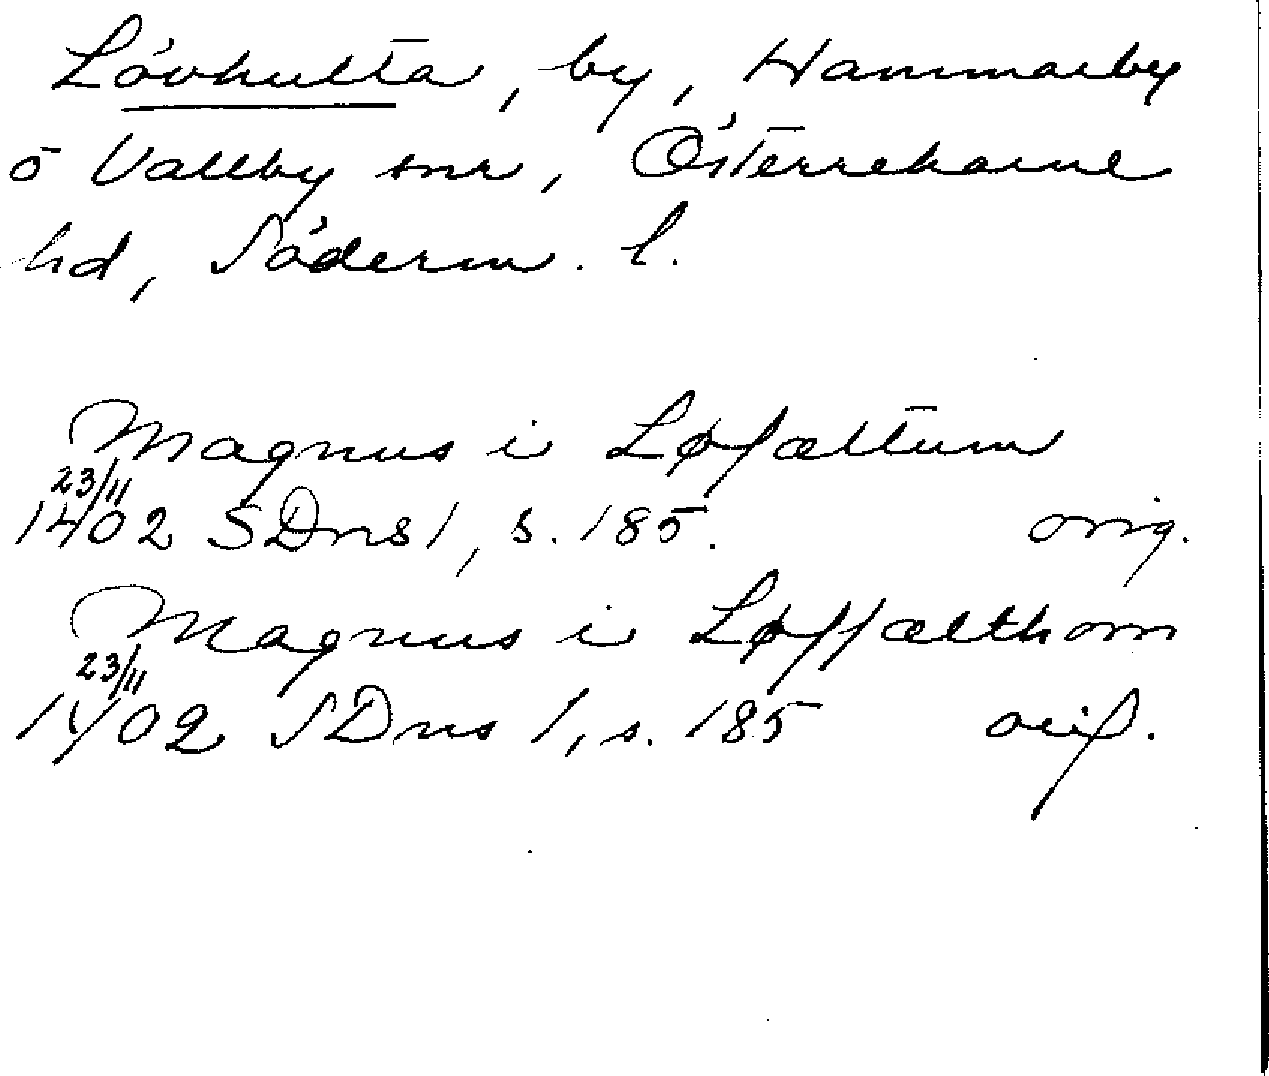 Lövhulta, by, Hammarby
o Vallby snr, Österrekarne
hd, Söderm. l.
Magnus i Løfæltum
23/11
1402 SDns 1, s. 185. orig.
Magnus i Løffælthom
23/11
1402 SDns 1, s. 185 orig.